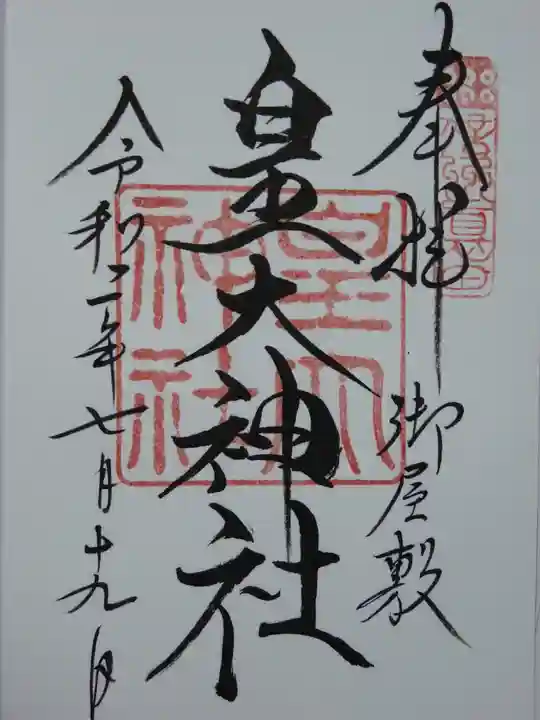 奉拝
御屋敷
皇大神社
皇大
神社
令和二年七月十九日